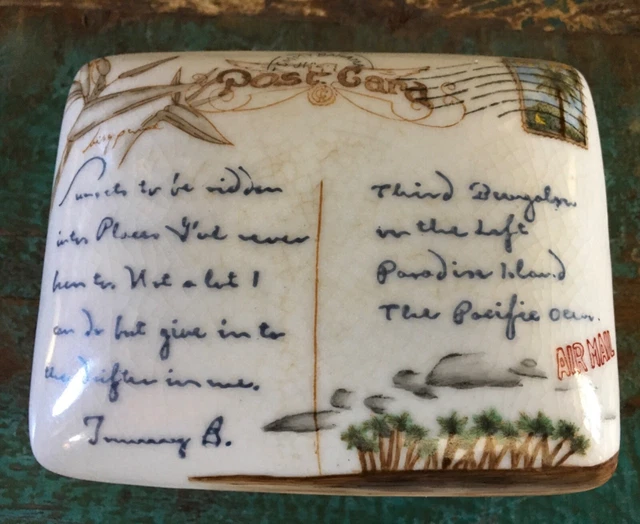 Post Card
Sunsets to be ridden
into Places I've never
been to. Not a lot I
can do but give in to
the drifter in me.
Jimmy B.
Third Bungalow
on the Left
Paradise Island
The Pacific Ocean.
AIR MAIL